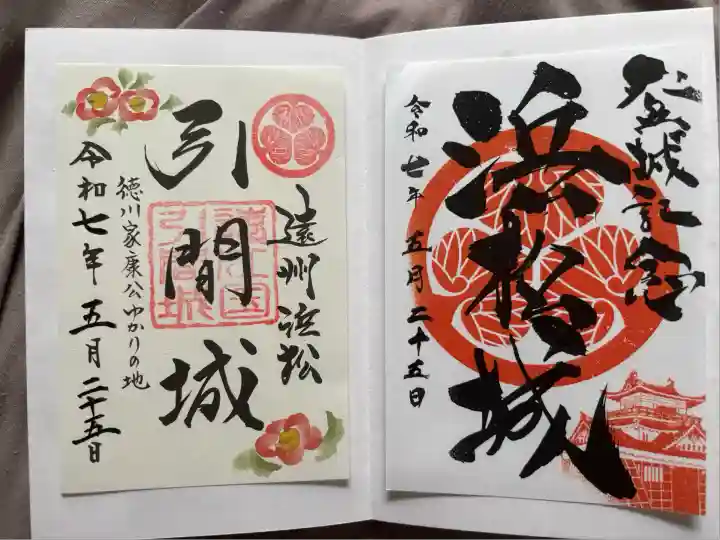 登城記念
浜松城
令和七年 五月二十五日
遠州浜松
引間城
徳川家康公ゆかりの地
令和七年 五月二十五日